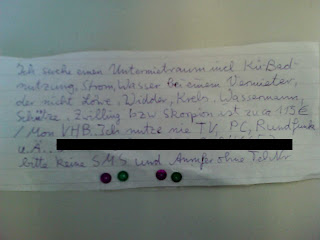 Ich suche einen Untermietraum incl Kü-Bad-
nutzung, Strom, Wasser bei einem Vermieter,
der nicht Löwe, Widder, Krebs, Wassermann,
Schütze, Zwilling bzw Skorpion ist zu ca 195 €
/ Mon VHB. Ich nutze nie TV, PC, Rundfunk
u. Ä..
bitte keine SMS und Anrufer ohne Tel.Nr